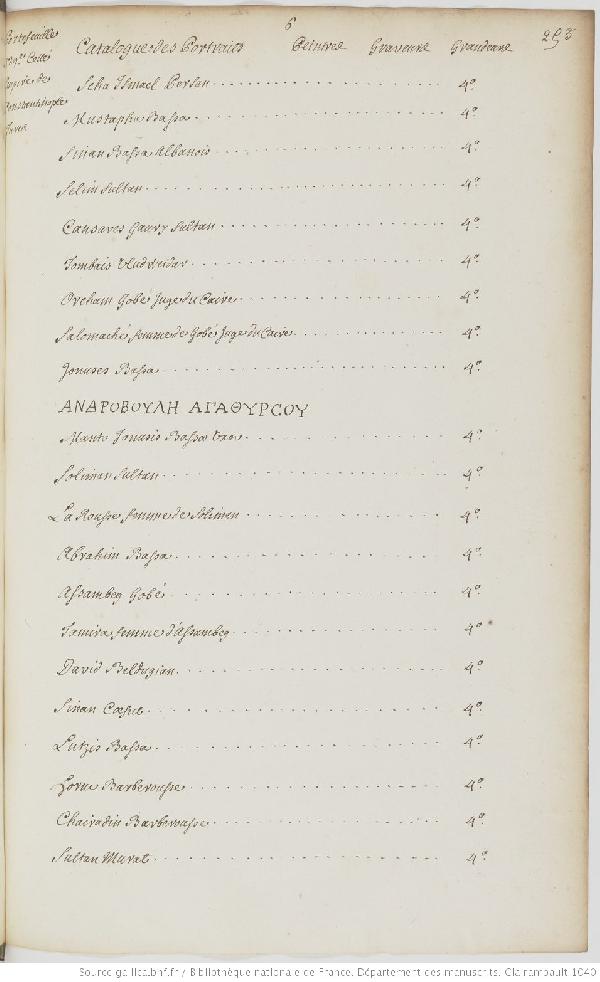 6
Portefeuille
Empire de
Constantinople
Catalogue des Portraits Peintres Graveurs Grandeurs
Scha Ismael Persan 4º
Mustapha Bassa 4º
Sinan Bassa Albanois 4º
Selim Sultan 4º
Causaves Gaury Sultan 4º
Tombais 4º
Orcham Gobé Juge du Caire 4º
Salomaché femme de Gobé Juge du Caire 4º
Jonuses Bassa 4º
ΑΝΔΡΟΒΟΥΛΗ ΑΓΑΘΥΡCΟΥ
Manto Jonusis Bassa 4º
Soliman Sultan 4º
La Rousse femme de Soliman 4º
Abrahim Bassa 4º
Assambeg Gobé 4º
Tamira femme d'Assambeg 4º
David 4º
Sinan 4º
Lutzis Bassa 4º
Horuc Barberousse 4º
Chairadin Barberousse 4º
Sultan Murat 4º
Source gallica.bnf.fr / Bibliothèque nationale de France. Département des manuscrits. Clairambault 1040